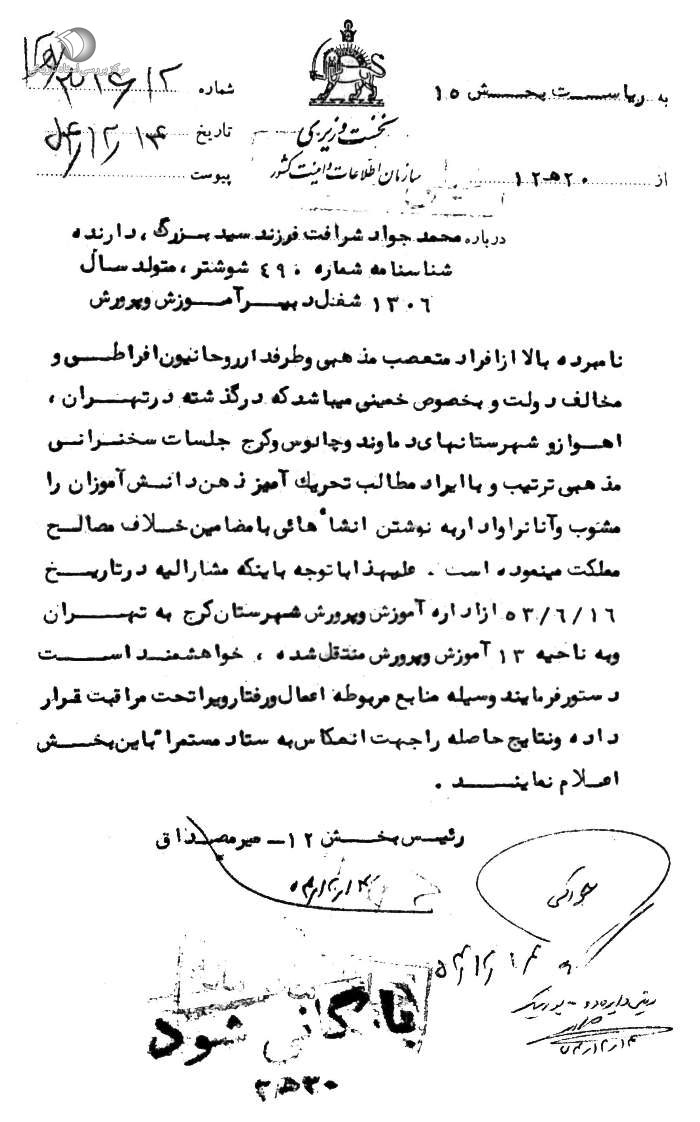 مرکز بررسی اسناد تاریخی
به ریاست بخش ۱۵
شماره
نخست وزیری
تاریخ ۵۴/۲/۱۴
سازمان اطلاعات و امنیت کشور
پیوست
از ۱۲ه۲۰
درباره محمد جواد شرافت فرزند سید بزرگ ، دارنده
شناسنامه شماره ۴۹۰ شوشتر ، متولد سال
۱۳۰۶ شغل دبیر آموزش وپرورش
نامبرده بالا از افراد متعصب مذهبی وطرفدار روحانیون افراطی و
مخالف دولت و بخصوص خمینی میباشد که درگذشته درتهران ،
اهواز و شهرستانهای دماوند وچالوس وکرج جلسات سخنرانی
مذهبی ترتیب و با ایراد مطالب تحریک آمیز ذهن دانش آموزان را
مشوب وآنانرا وادار به نوشتن انشاء هائی با مضامین خلاف مصالح
مملکت مینموده است . علیهذا با توجه باینکه مشارالیه درتاریخ
۵۳/۶/۱۶ از اداره آموزش وپرورش شهرستان کرج به تهران
وبه ناحیه ۱۳ آموزش وپرورش منتقل شده ، خواهشمند است
دستور فرمایند وسیله منابع مربوطه اعمال ورفتار ویرا تحت مراقبت قرار
داده ونتایج حاصله را جهت انعکاس به ستاد مستمرا" باین بخش
اعلام نمایند .
رئیس بخش ۱۲ــ میرمصداق
بایگانی شود
۳ه۳۰